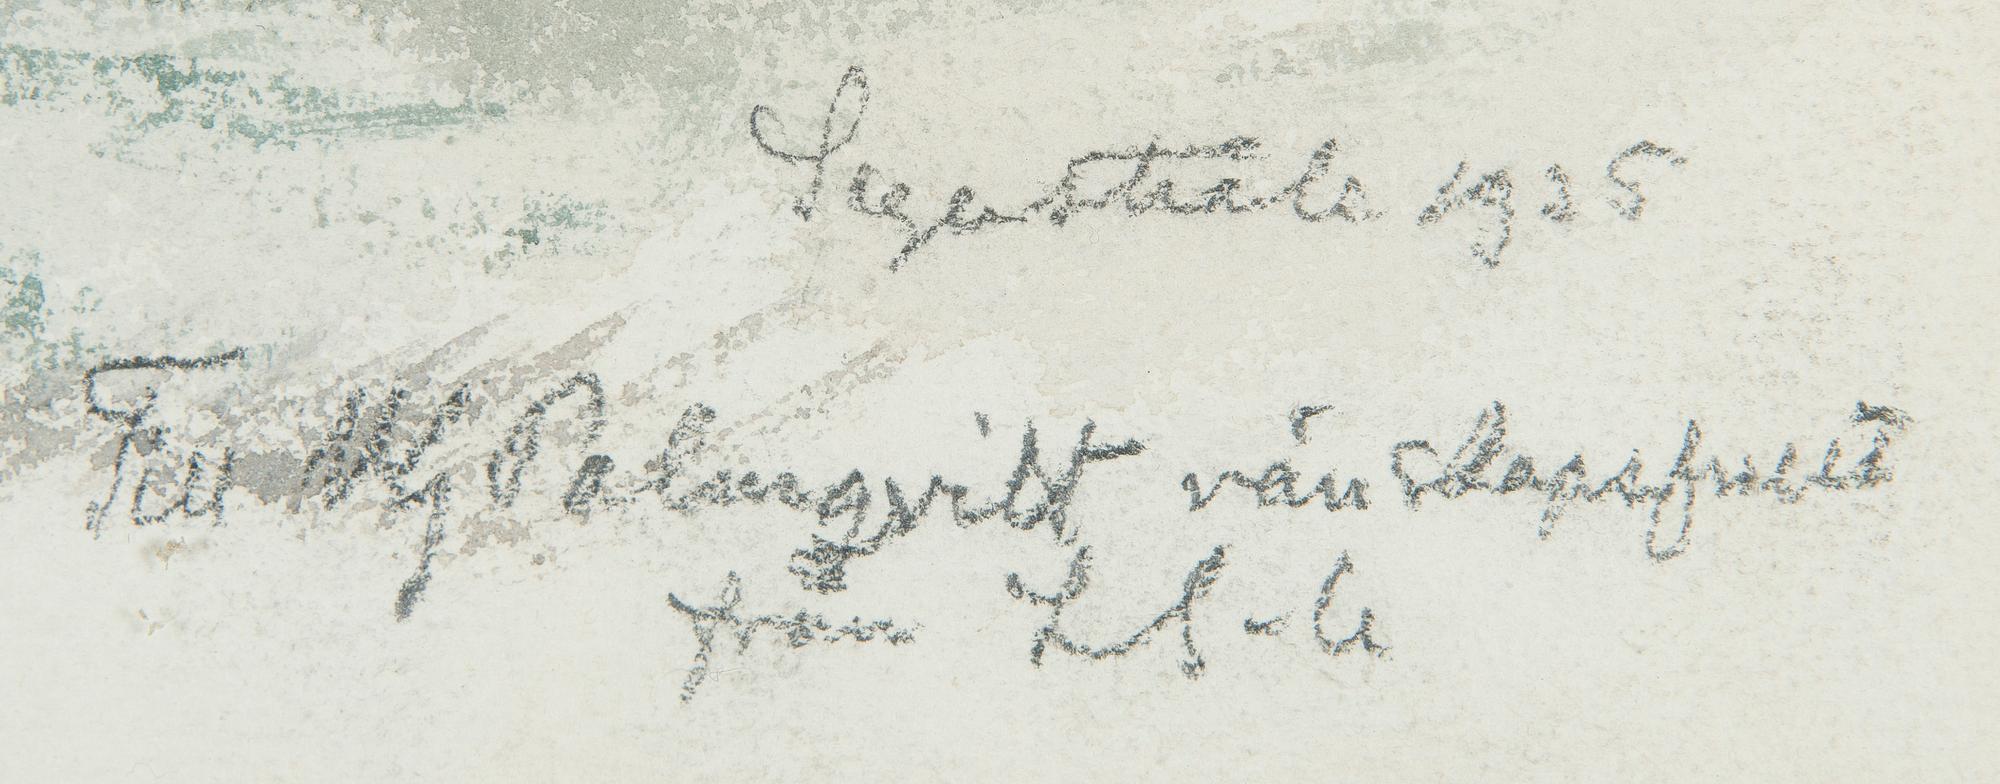 Segerstråle 1935
Till Palmqvist vänskapsfullt
från L S-le